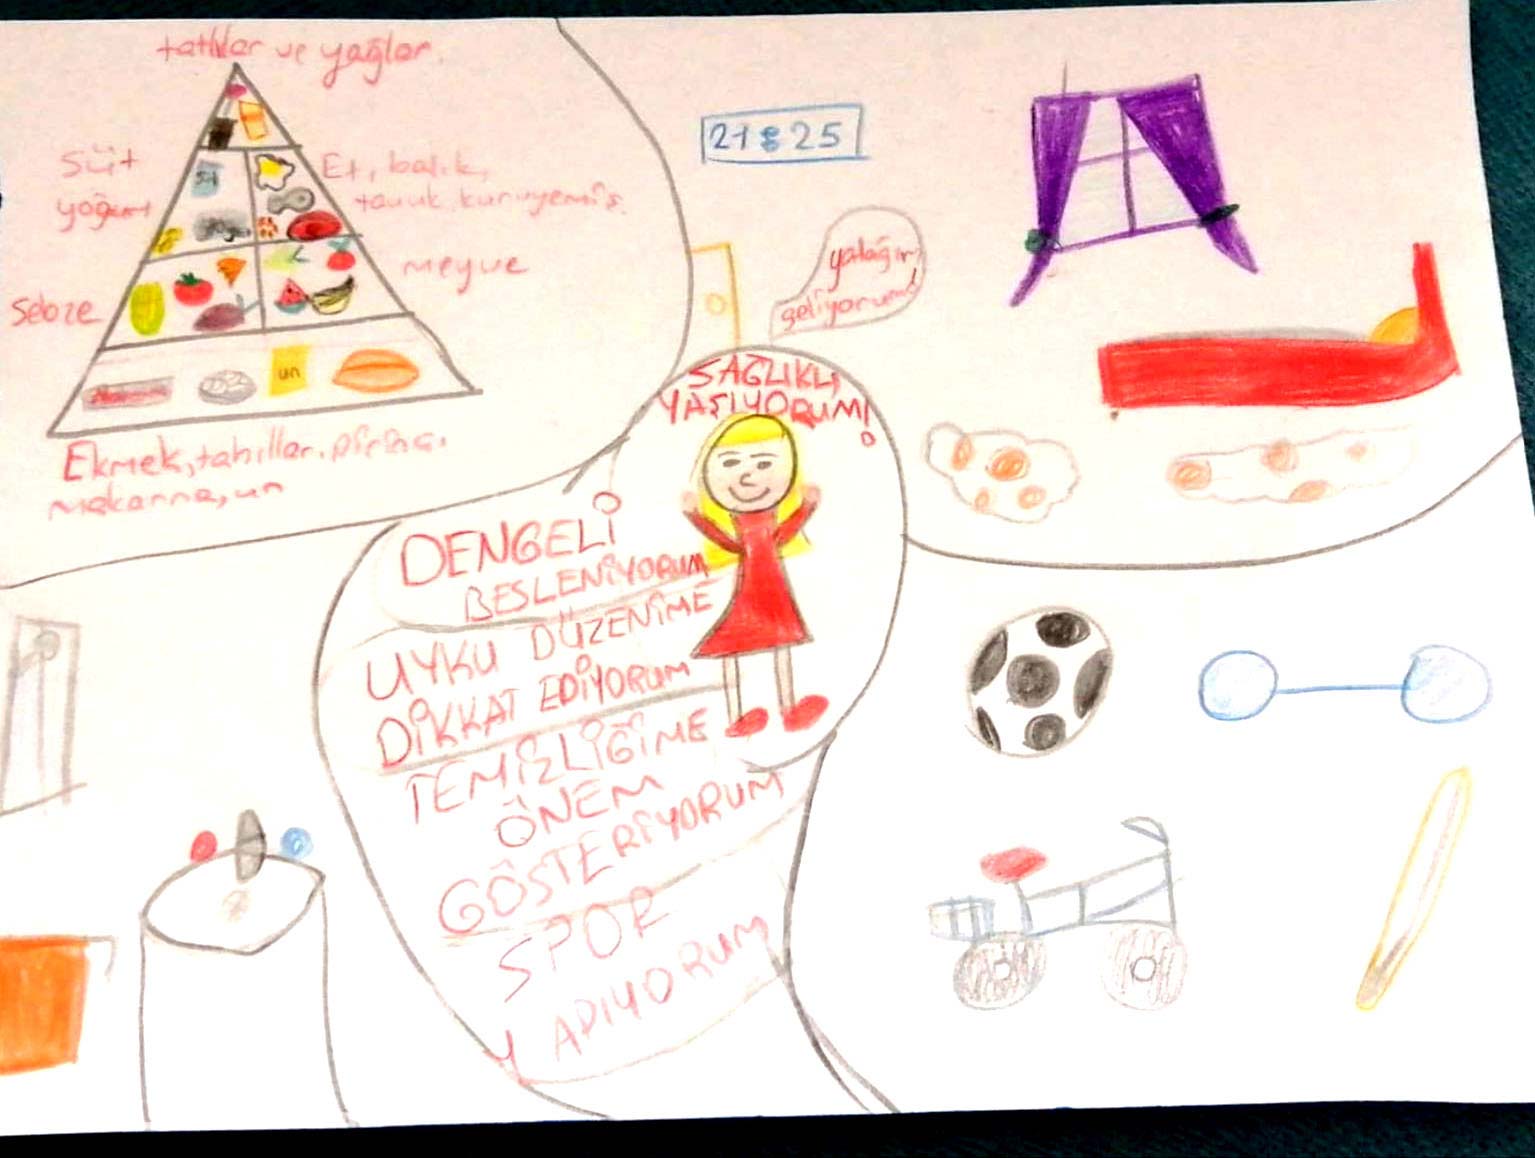 tatlılar ve yağlar.
Süt
yoğurt
Et, balık,
tavuk, kuruyemiş.
süt
Sebze
meyve
un
Ekmek, tahıllar, pirinç.
makarna, un
21:25
yatağım
geliyorum!
SAĞLIKLI
YAŞIYORUM!
DENGELİ
BESLENİYORUM
UYKU DÜZENİME
DİKKAT EDİYORUM
TEMİZLİĞİME
ÖNEM
GÖSTERİYORUM
SPOR
YAPIYORUM